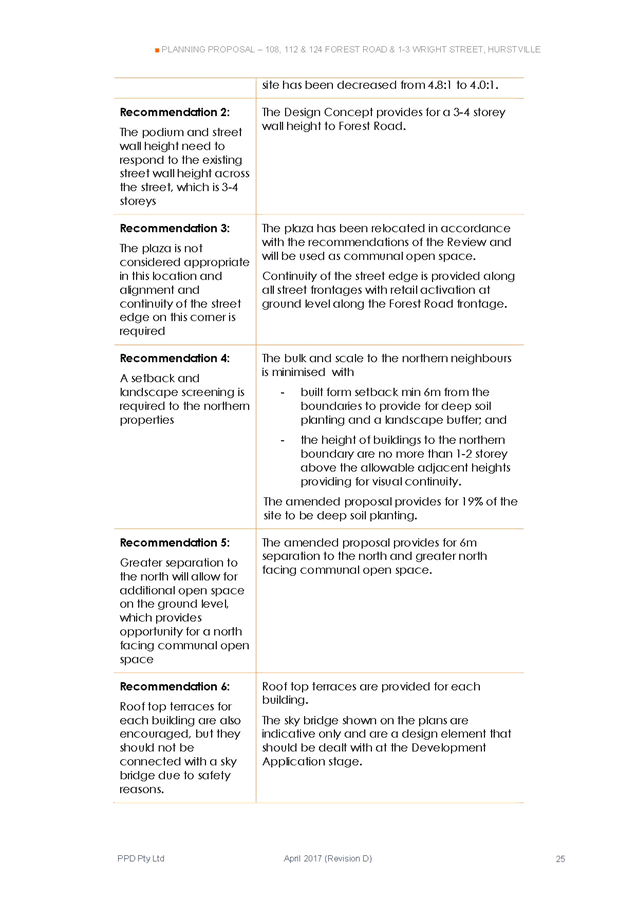 ■ PLANNING PROPOSAL – 108, 112 & 124 FOREST ROAD & 1-3 WRIGHT STREET, HURSTVILLE
site has been decreased from 4.8:1 to 4.0:1.
Recommendation 2:
The podium and street
wall height need to
respond to the existing
street wall height across
the street, which is 3-4
storeys
The Design Concept provides for a 3-4 storey
wall height to Forest Road.
Recommendation 3:
The plaza is not
considered appropriate
in this location and
alignment and
continuity of the street
edge on this corner is
required
The plaza has been relocated in accordance
with the recommendations of the Review and
will be used as communal open space.
Continuity of the street edge is provided along
all street frontages with retail activation at
ground level along the Forest Road frontage.
Recommendation 4:
A setback and
landscape screening is
required to the northern
properties
The bulk and scale to the northern neighbours
is minimised with
- built form setback min 6m from the
boundaries to provide for deep soil
planting and a landscape buffer; and
- the height of buildings to the northern
boundary are no more than 1-2 storey
above the allowable adjacent heights
providing for visual continuity.
The amended proposal provides for 19% of the
site to be deep soil planting.
Recommendation 5:
Greater separation to
the north will allow for
additional open space
on the ground level,
which provides
opportunity for a north
facing communal open
space
The amended proposal provides for 6m
separation to the north and greater north
facing communal open space.
Recommendation 6:
Roof top terraces for
each building are also
encouraged, but they
should not be
connected with a sky
bridge due to safety
reasons.
Roof top terraces are provided for each
building.
The sky bridge shown on the plans are
indicative only and are a design element that
should be dealt with at the Development
Application stage.
PPD Pty Ltd April 2017 (Revision D) 25